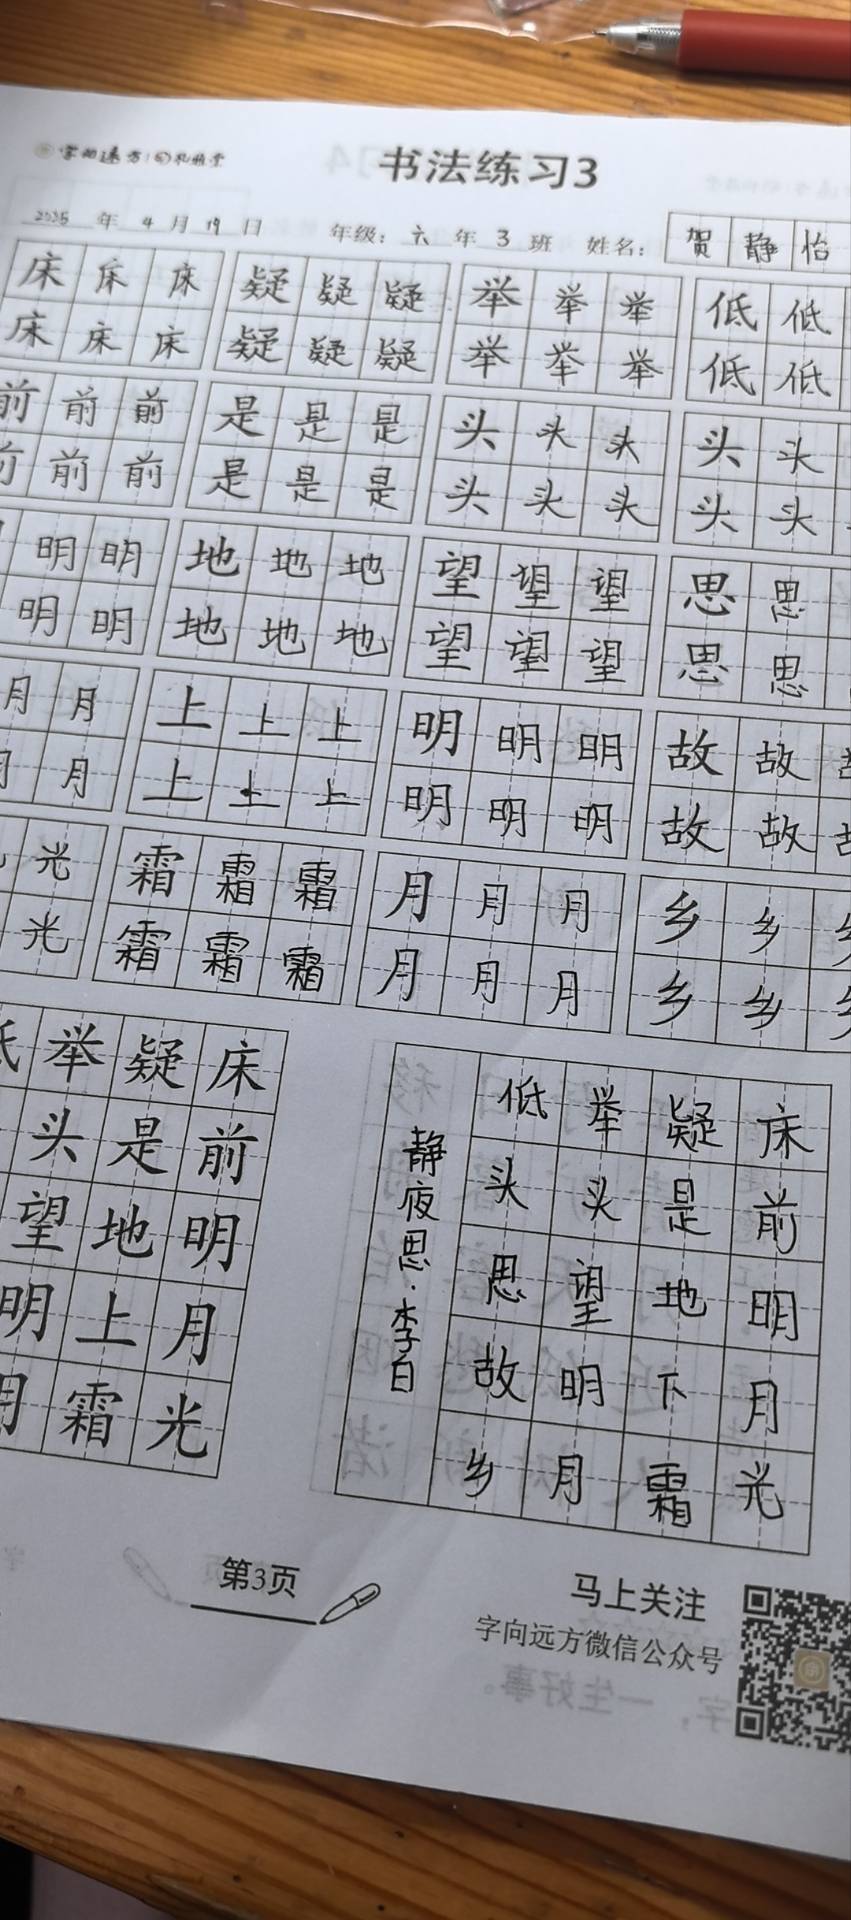 字向远方
书法练习3
2025 年 4 月 19 日 年级：六 年 3 班 姓名：贺静怡
床床床 疑疑疑 举举举 低低
床床床 疑疑疑 举举举 低低
前前前 是是是 头头头 头头
前前前 是是是 头头头 头头
明明 地地地 望望望 思思
明明 地地地 望望望 思思
月月 上上上 明明明 故故故
月月 上上上 明明明 故故故
光 霜霜霜 月月月 乡乡乡
光 霜霜霜 月月月 乡乡乡
床前明月光
疑是地上霜
举头望明月
低
床前明月光
疑是地下霜
举头望明月
低头思故乡
静夜思·李白
第3页
马上关注
字向远方微信公众号